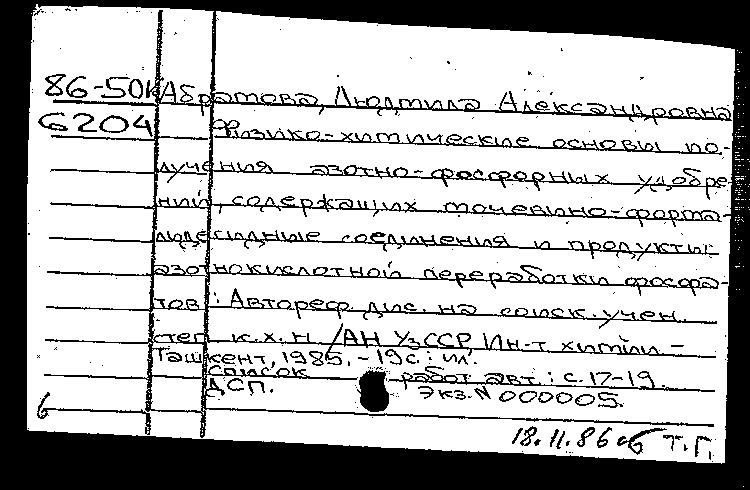 86-50к Абратова, Людмила Александровна
6204 Физико-химические основы по-
лучения азотно-фосфорных удобре-
ний, содержащих мочевино-форма-
льдегидные соединения и продукты
азотнокислотной переработки фосфа-
тов: Автореф. дис. на соиск. учен.
степ. к.х.н. / АН УзССР, Ин-т химии -
Ташкент, 1985. - 19 с.: ил.
Список работ авт.: с. 17-19.
ДСП. Экз. N 000005.
6
18.11.86 Т.Г.